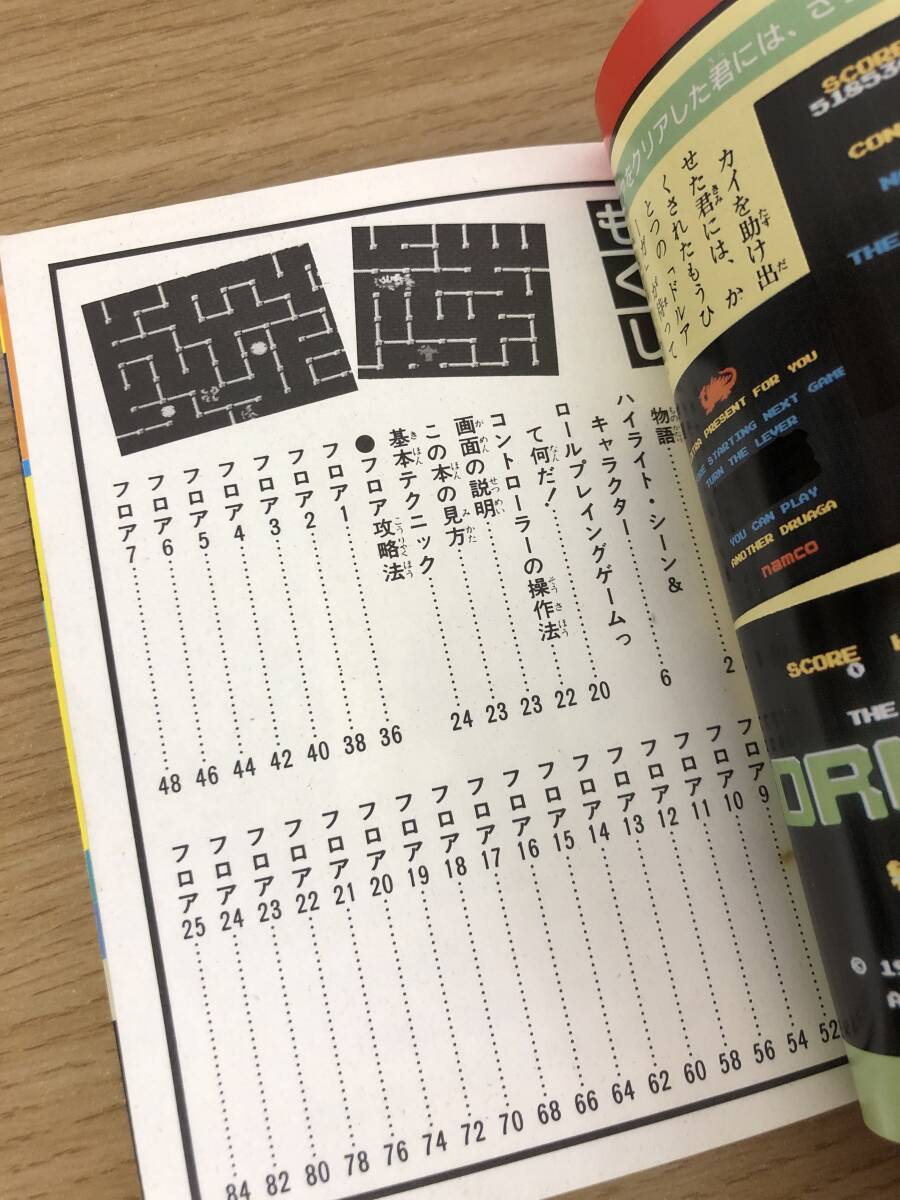 もくじ
物語 2
ハイライト・シーン&
キャラクター 6
ロールプレイングゲームっ
て何だ! 20
コントローラーの操作法 22
画面の説明 23
この本の見方 23
基本テクニック 24
●フロア攻略法
フロア1 36
フロア2 38
フロア3 40
フロア4 42
フロア5 44
フロア6 46
フロア7 48
フロア9 52
フロア10 54
フロア11 56
フロア12 58
フロア13 60
フロア14 62
フロア15 64
フロア16 66
フロア17 68
フロア18 70
フロア19 72
フロア20 74
フロア21 76
フロア22 78
フロア23 80
フロア24 82
フロア25 84
をクリアした君には、さ
カイを助け出
せた君には、か
くされたもうひ
とつの「ドルア
SCORE
51853
CON
THE
PRESENT FOR YOU
STARTING NEXT GAME
TURN THE LEVER
YOU CAN PLAY
ANOTHER DRUAGA
namco
SCORE
THE
©